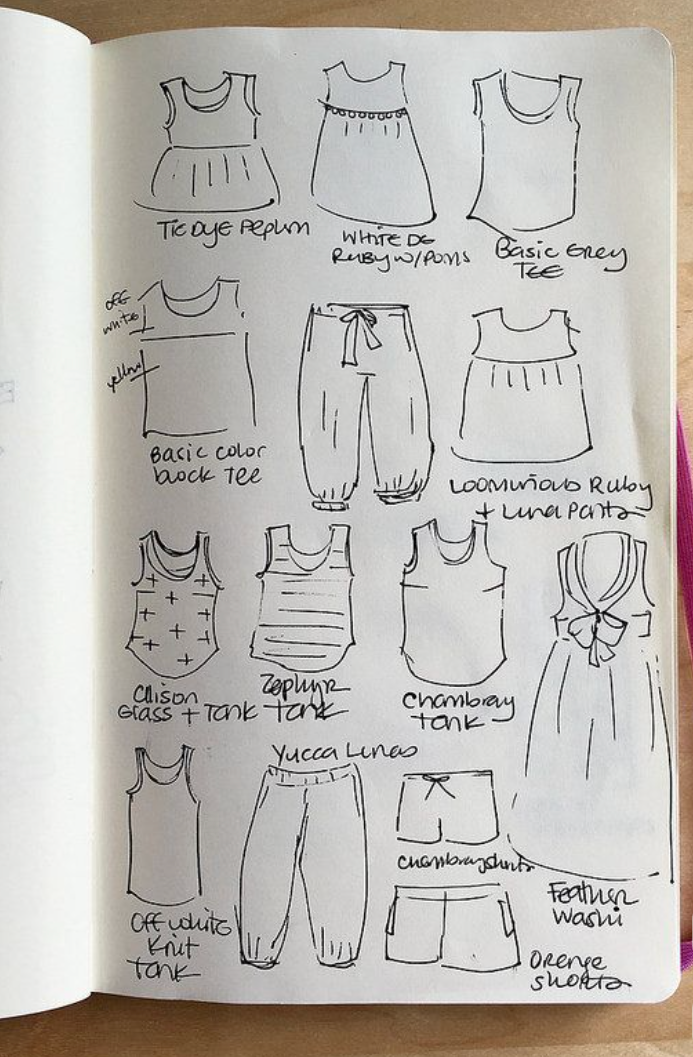 Tie Dye Peplum
White DG
Ruby w/Poms
Basic Grey
Tee
off
white
yellow
Basic color
block Tee
Luminous Ruby
+ Luna Pants
Allison
Glass + Tank
Zephyr
Tank
Chambray
tank
Yucca Lunas
chambray shorts
Feather
Washi
Off white
Knit
Tank
Orenge
shorts